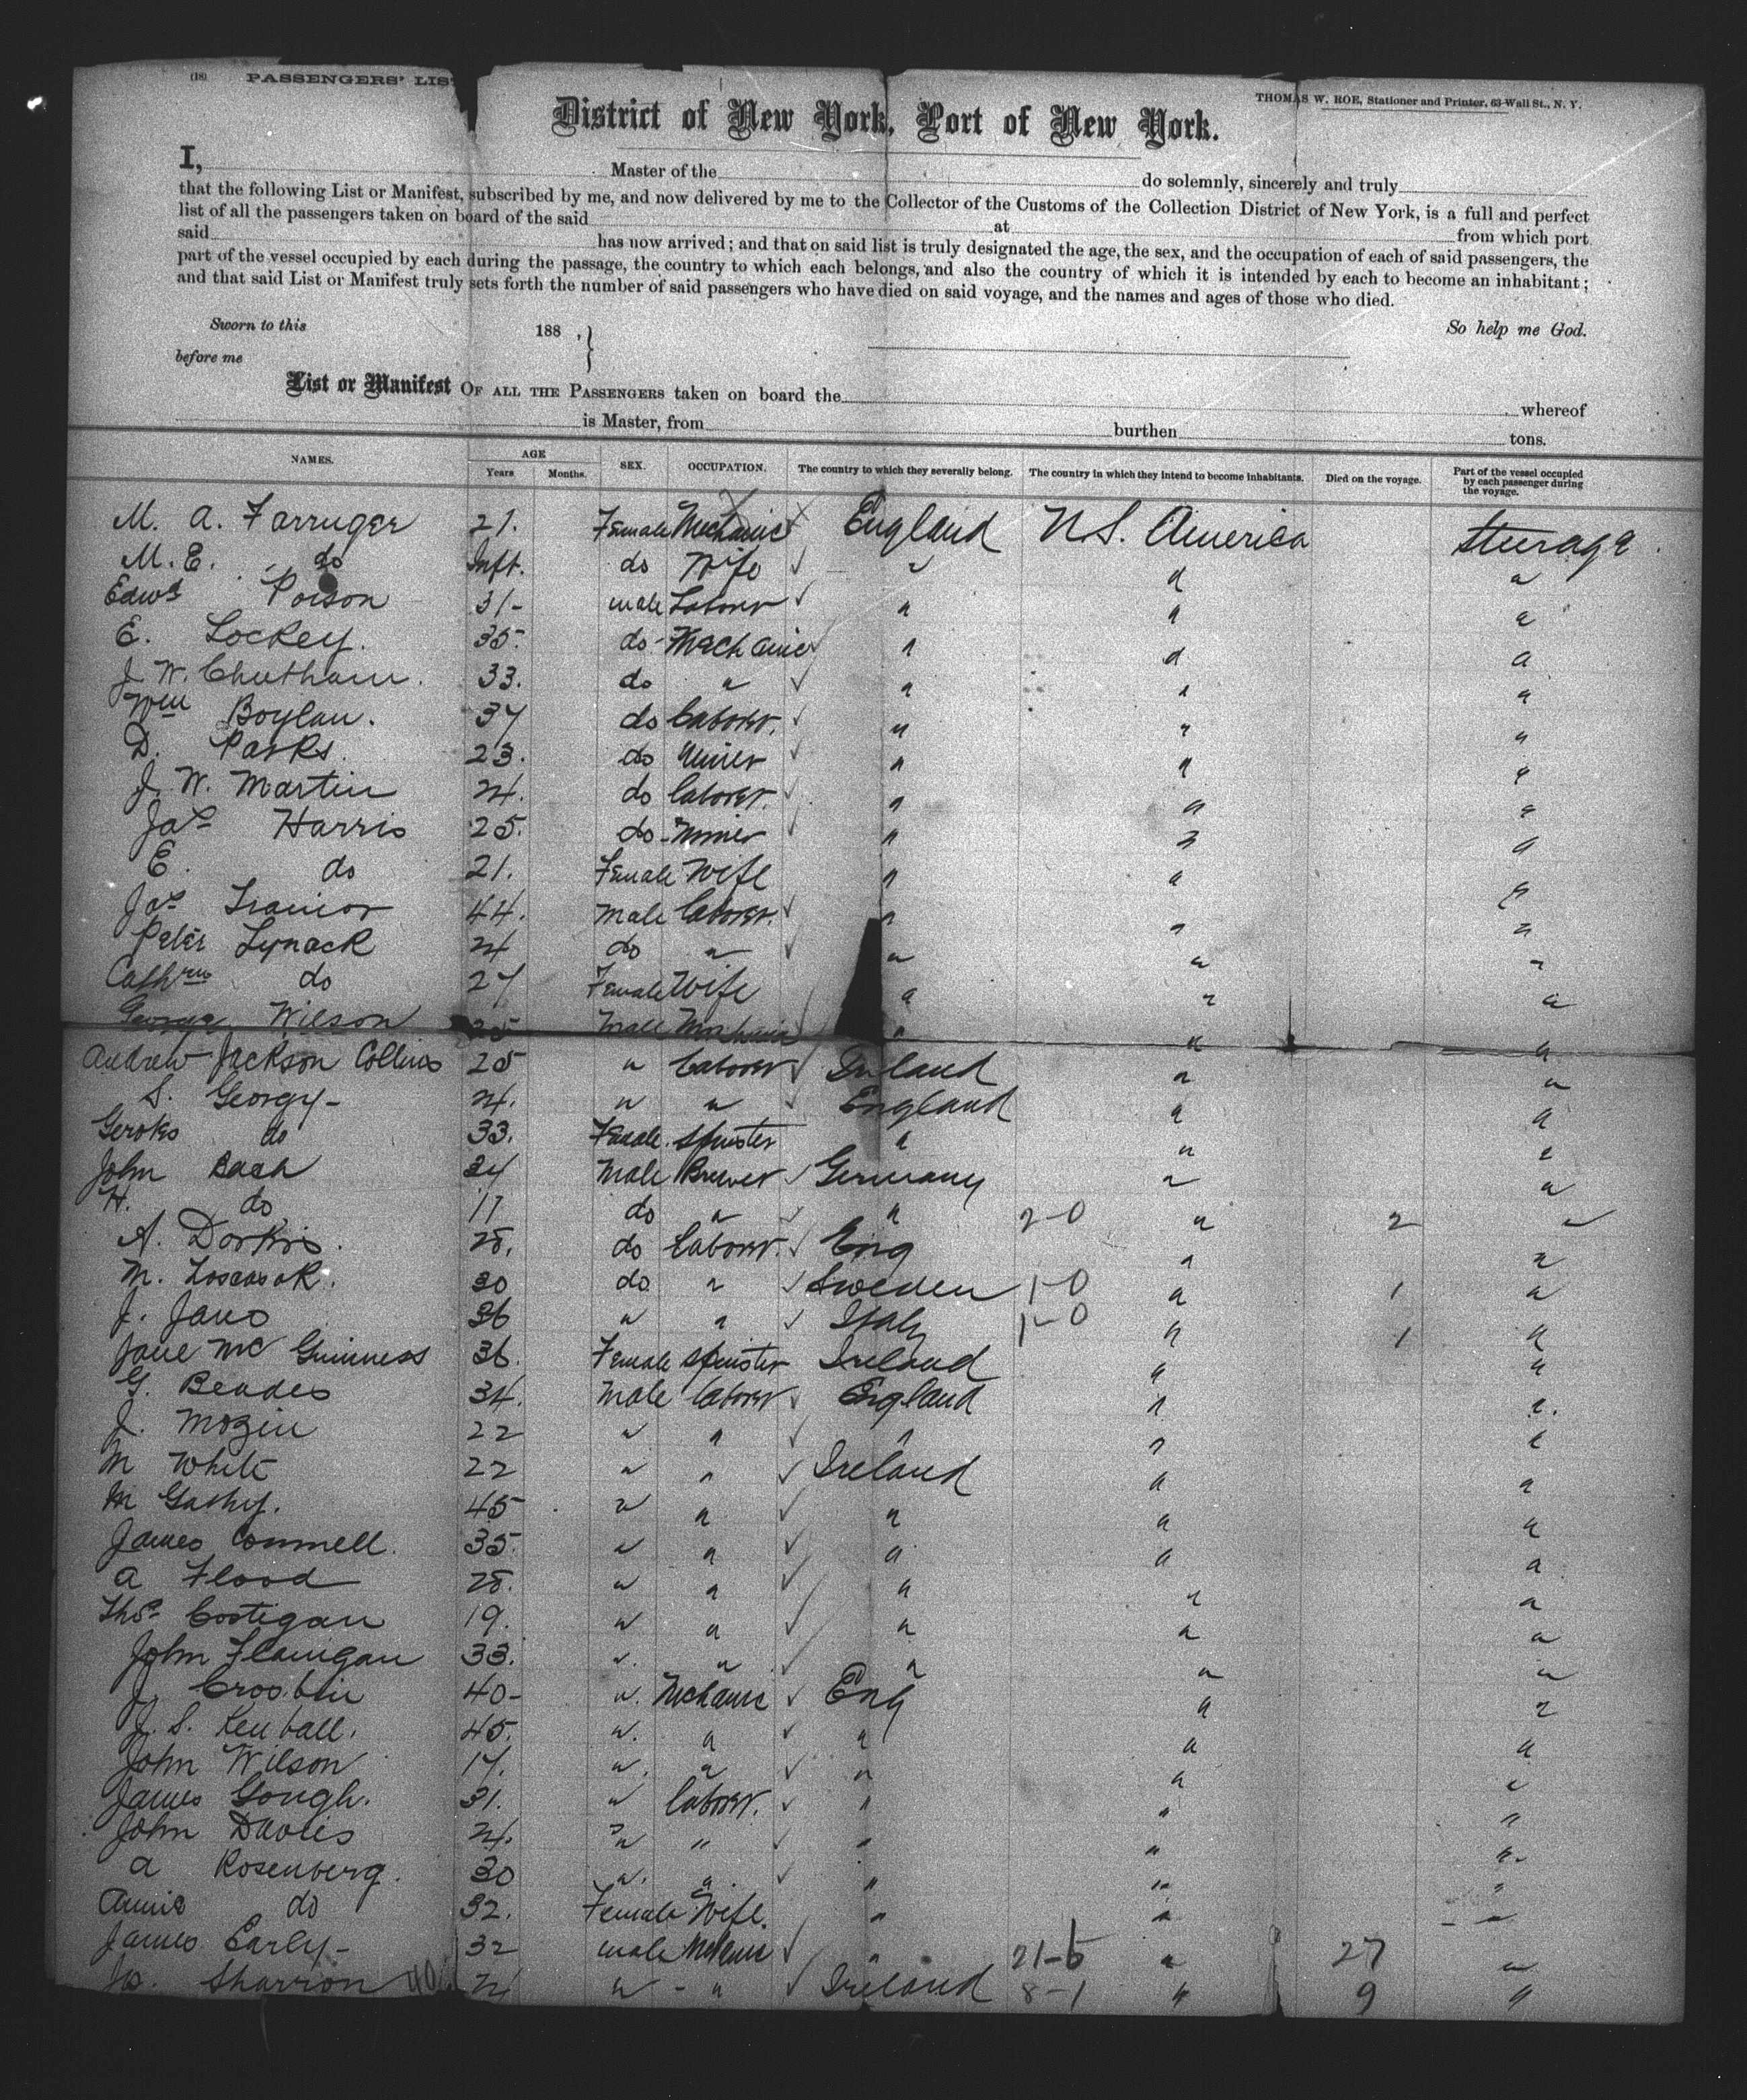 (18) PASSENGERS' LIS
THOMAS W. ROE, Stationer and Printer, 63 Wall St., N. Y.
District of New York, Port of New York.
I, Master of the do solemnly, sincerely and truly
that the following List or Manifest, subscribed by me, and now delivered by me to the Collector of the Customs of the Collection District of New York, is a full and perfect
list of all the passengers taken on board of the said at from which port
said has now arrived; and that on said list is truly designated the age, the sex, and the occupation of each of said passengers, the
part of the vessel occupied by each during the passage, the country to which each belongs, and also the country of which it is intended by each to become an inhabitant;
and that said List or Manifest truly sets forth the number of said passengers who have died on said voyage, and the names and ages of those who died.
Sworn to this 188 , } So help me God.
before me
List or Manifest OF ALL THE PASSENGERS taken on board the whereof
is Master, from burthen tons.
NAMES. AGE Years Months. SEX. OCCUPATION. The country to which they severally belong. The country in which they intend to become inhabitants. Died on the voyage. Part of the vessel occupied by each passenger during the voyage.
M. A. Farruger 21. Female Mechanic England U.S. America Steerage
M. E. do Inft. do Wife " " "
Edwd Poison 31 male Laborer " " "
E. Lockey. 35. do Mechanic " " "
J. W. Chutham. 33. do " " " "
Wm Boylan. 37 do Laborer. " " "
D. Parks. 23. do Miner " " "
J. W. Martin 24. do Laborer. " " "
Jas Harris 25. do Miner " " "
E. do 21. Female Wife " " "
Jas Trainor 44. Male Laborer. " " "
Peter Lynack 24 do " " " "
Cathrin do 27 Female Wife " " "
George Wilson 25 Male Mechanic " " "
Andrew Jackson Collins 25 " Laborer Ireland " "
S. Georgy 24. " " England " "
do 33. Female. Spinster " " "
John Bach 34 Male Brewer Germany " "
H. do 11 do " " 2-0 " 2 "
A. Dorkis. 28. do Laborer. Eng " "
M. 30 do " Sweden 1-0 " 1 "
J. Jano 36 " " Italy 1-0 " 1 "
Jane Mc Guinness 36. Female Spinster Ireland " "
G. Beades 34. Male Laborer England " "
J. Mozin 22 " " " " "
M White 22 " " Ireland " "
M Gathy. 45 " " " " "
James Connell. 35. " " " " "
A Flood 28. " " " " "
Thos Costigan 19. " " " " "
John Flanigan 33. " " " " "
J. Crosbin 40 " Mechanic Eng " "
J. S. Kenball. 45. " " " " "
John Wilson 17. " " " " "
James Gough. 31. " Laborer. " " "
John Davies 24. " " " " "
A Rosenberg. 30 " " " " "
Annie do 32. Female Wife. " " "
James Early 32 male Mechanic " 21-6 " 27 "
Jas. Sharron 40 24 " " Ireland 8-1 " 9 "